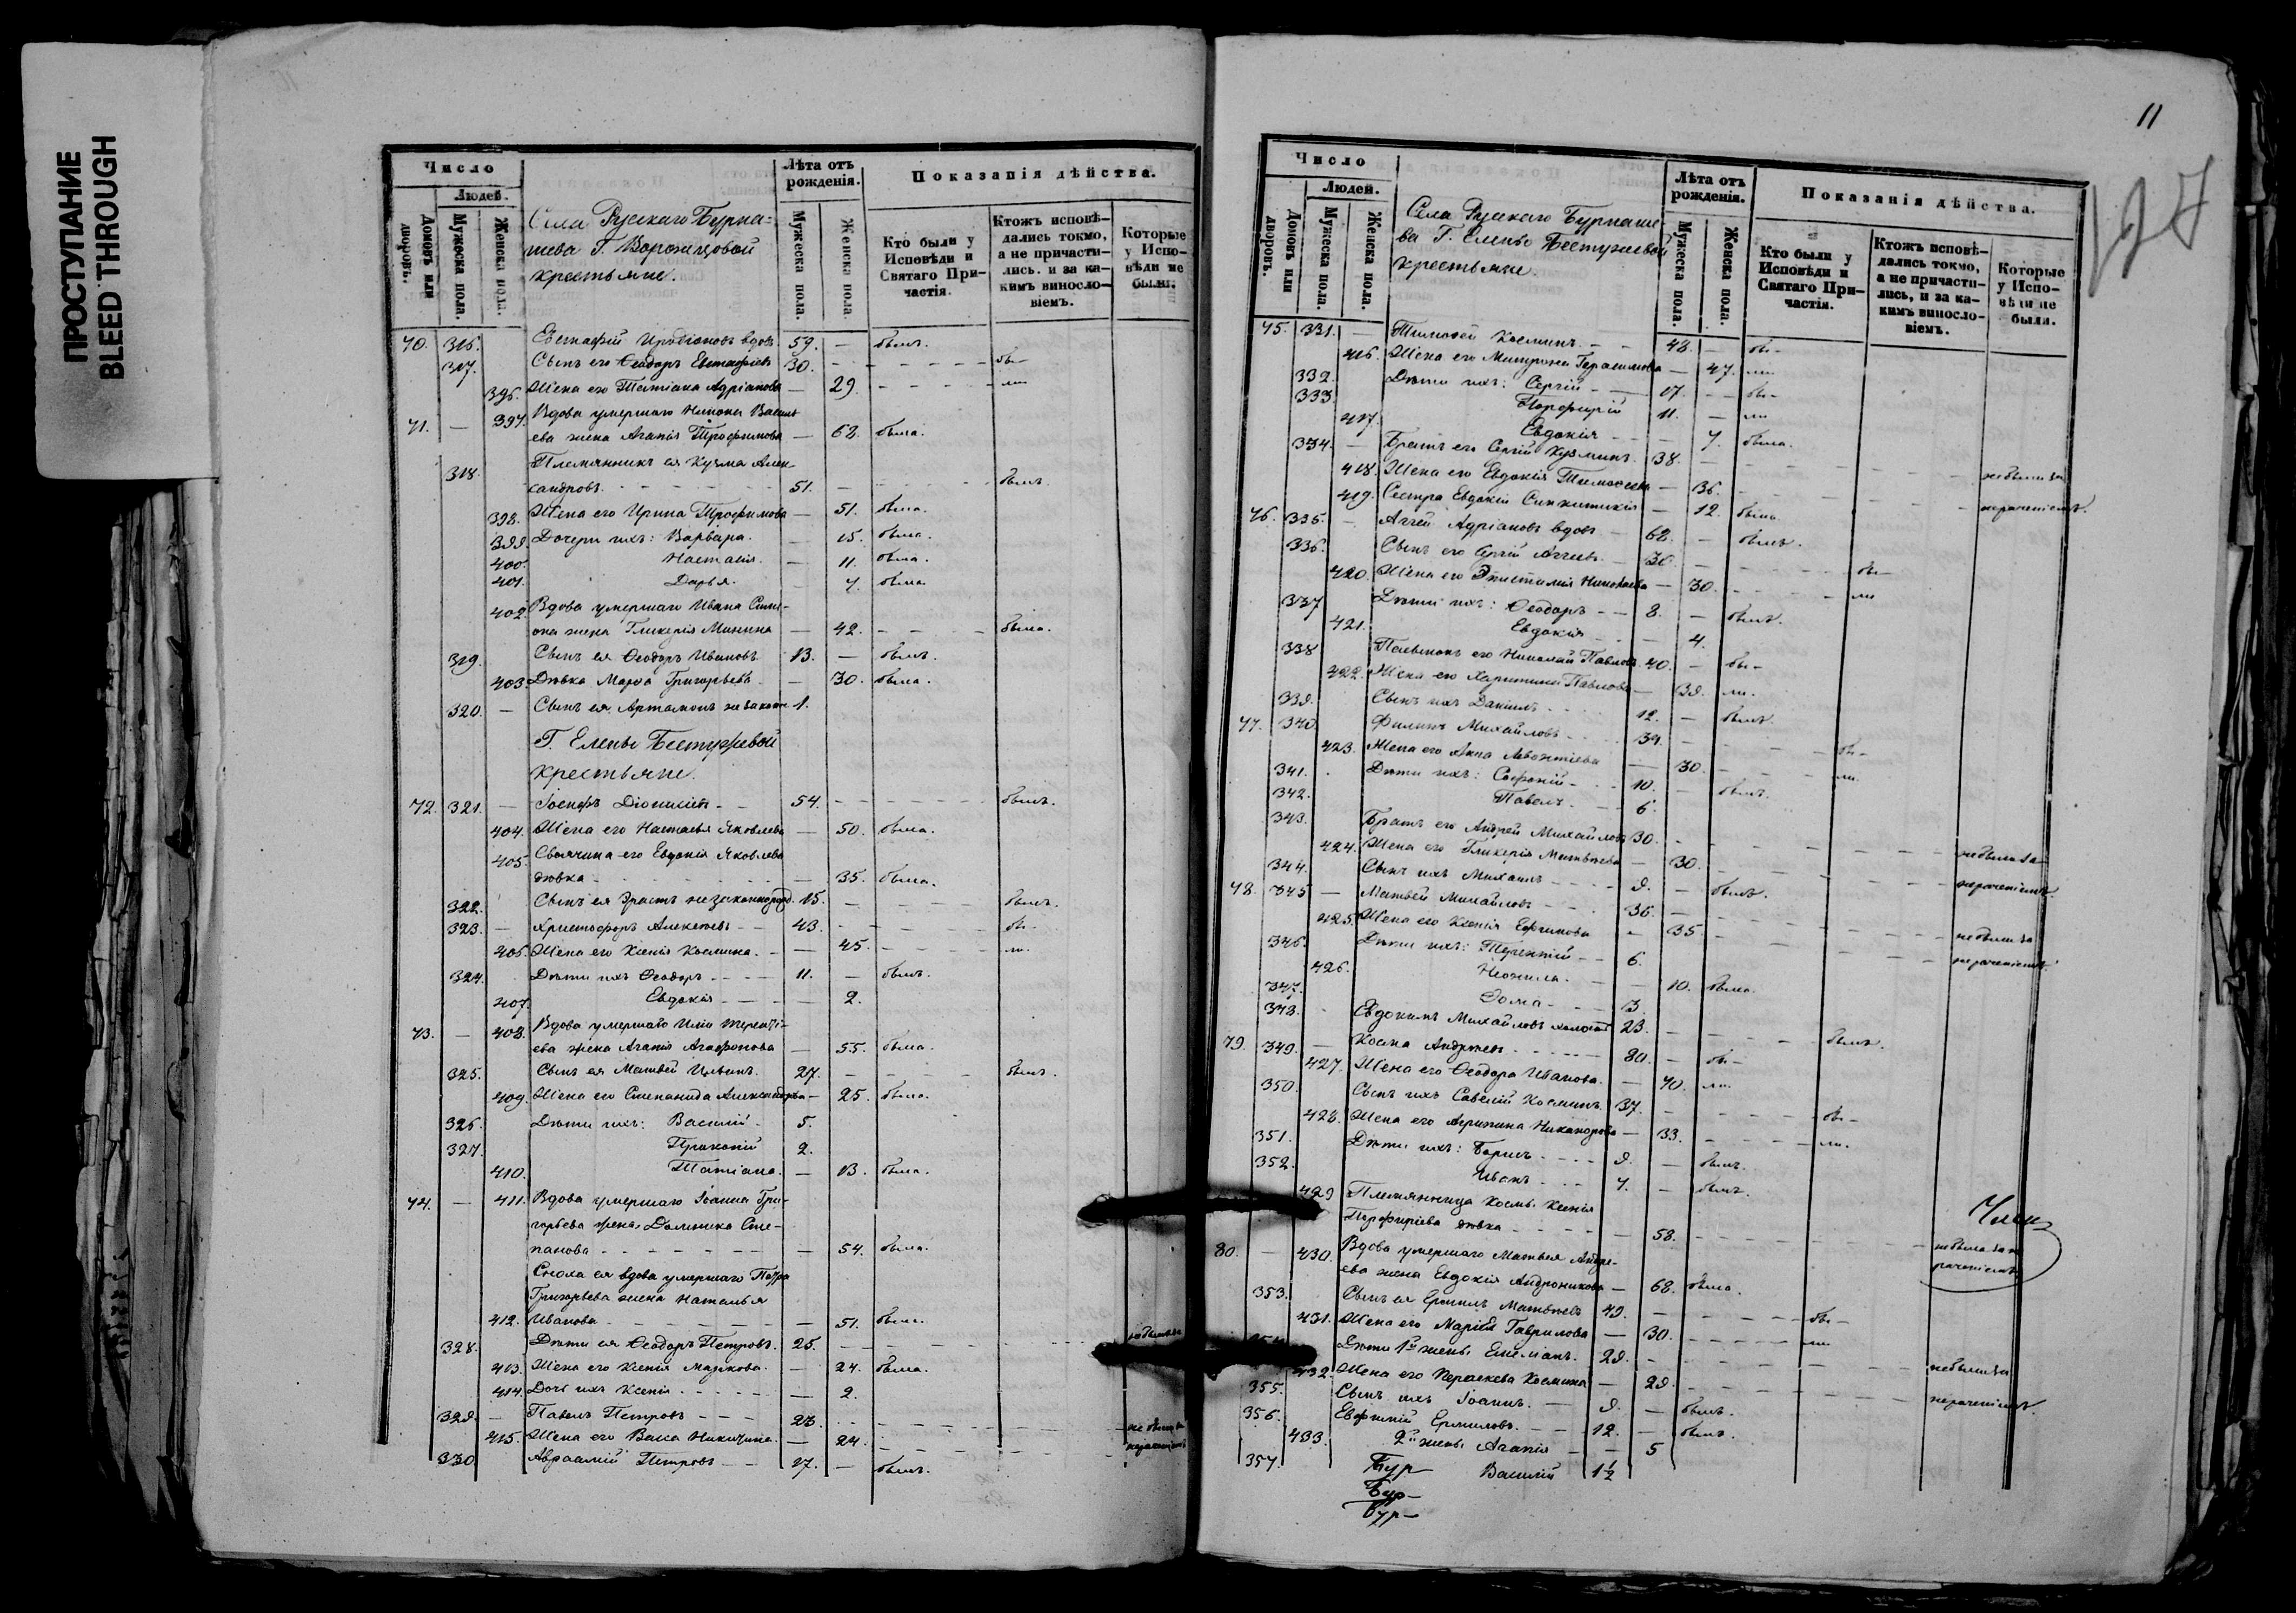 ПРОСТУПАНИЕ
BLEED THROUGH
Число
Людей.
Домовъ или дворовъ.
Мужеска пола.
Женска пола.
Села Русскаго Бурна-
шева Г. Воронцовой
крестьяне.
Лѣта отъ рожденія.
Мужеска пола.
Женска пола.
Показанія дѣйства.
Кто были у Исповѣди и Святаго При-частія.
Ктожъ исповѣ-дались токмо, а не причасти-лись. и за ка-кимъ винносло-віемъ.
Которые у Испо-вѣди не были.
70. 316. Евстафій Иродіоновъ вдовъ. 59. — былъ.
317. Сынъ его Ѳеодоръ Евстафіевъ 30. бы-
396. Жена его Татіана Адріанова — 29. ла
71. — 397. Вдова умершаго Никона Василь-
ева жена Агапія Трофимова — 62. была.
318. Племянникъ ея Кузма Алек-
сандровъ. 51. — былъ.
398. Жена его Ирина Трофимова — 51. была.
399. Дочери ихъ: Варвара. — 15. была.
400. Настасія. — 11. была.
401. Дарья. 7. была
402. Вдова умершаго Ивана Симе-
она жена Гликерія Минина — 42. — была.
319. Сынъ ея Ѳеодоръ Ивановъ. 13. — былъ.
403. Дѣвка Марѳа Григорьева — 30. была.
320. — Сынъ ея Артамонъ незаконн 1.
Г. Елены Бестужевой
крестьяне.
72. 321. — Іосифъ Діонисіевъ 54. — былъ.
404. Жена его Настасья Яковлева — 50. была.
405. Своячина его Евдокія Яковлева
дѣвка — 35. была.
322. Сынъ ея Эрастъ незаконнорожд. 15. — былъ.
323. — Христофоръ Алексѣевъ 43. бы-
406. Жена его Ксенія Косьмина. — 45. ла.
324. Дѣти ихъ Ѳеодоръ 11. — былъ.
407. Евдокія — 2.
73. — 408. Вдова умершаго Иліи Терентi-
ева жена Агапія Агафонова — 55. была.
325. Сынъ ея Матвей Ильинъ. 27. былъ.
409. Жена его Степанида Александрова — 25. была.
326. Дѣти ихъ: Василій 5.
327. Прокопій 2.
410. Татіана. — 13. была.
74. — 411. Вдова умершаго Іоанна Гри-
горьева жена Домника Сте-
панова — 54. была.
Сноха ея вдова умершаго Петра
Григорьева жена Наталья
412. Иванова — 51. была.
328. Дѣти ея Ѳеодоръ Петровъ. 25.
413. Жена его Ксенія Маркова. — 24. была.
414. Дочь ихъ Ксенія — 2.
329. — Павелъ Петровъ 26. не были за
415. Жена его Васса Никитина. — 24. нераченіемъ
330 Авраамій Петровъ 17. — былъ.
11
127
Число
Людей.
Домовъ или дворовъ.
Мужеска пола.
Женска пола.
Села Русскаго Бурнаше-
ва Г. Елены Бестужевой
крестьяне.
Лѣта отъ рожденія.
Мужеска пола.
Женска пола.
Показанія дѣйства.
Кто были у Исповѣди и Святаго При-частія.
Ктожъ исповѣ-дались токмо, а не причасти-лись, и за ка-кимъ винносло-віемъ.
Которые у Испо-вѣди не были.
75. 331. — Тимоѳей Косминъ. 48. — бы-
416. Жена его Митрона Герасимова — 47. ла
332. Дѣти ихъ: Сергій 17. бы-
333. Порфирій 11. — ли
417. Евдокія — 7. была.
334. — Братъ его Сергій Кузминъ. 38. не были за
418. Жена его Евдокія Тимоѳеева — 36. нераченіемъ.
419. Сестра Евдокіи Синклитикія — 12. была.
76. 335. — Аггей Адріановъ вдовъ 62. — былъ.
336. Сынъ его Сергій Аггеевъ 30. бы-
420. Жена его Эпистимія Николаева — 30. ли
337 Дѣти ихъ: Ѳеодоръ 8. — былъ.
421. Евдокія — 4.
338 Пасынокъ его Николай Павловъ 40. — бы-
422. Жена его Харитина Павлова — 39. ли.
339. Сынъ ихъ Даніилъ 12. — былъ.
77. 340. Филипъ Михайловъ 34. бы-
423. Жена его Анна Леонтіева — 30. ли.
341. Дѣти ихъ: Софроній 10. — былъ.
342. Павелъ. 6.
343. Братъ его Андрей Михайловъ 30. не были за-
424. Жена его Гликерія Матвѣева — 30. нераченіемъ.
344. Сынъ ихъ Михаилъ 9. — былъ.
78. 345 — Матвей Михайловъ 36. не были за
425. Жена его Ксенія Ефимова — 35. нераченіемъ.
346. Дѣти ихъ: Терентій 6.
426. Неонила. — 10. была.
347. Ѳома 3.
348. Евдокимъ Михайловъ холостъ 23. былъ.
79. 349. — Косма Андреевъ 80. — бы-
427. Жена его Ѳеодора Иванова. — 70. ли.
350. Сынъ ихъ Савелій Косминъ. 37. бы-
428. Жена его Агрипина Никанорова — 33. ли.
351. Дѣти ихъ: Борисъ 9. — былъ.
352. Иванъ 7. — былъ.
429 Племянница Космы Ксенія
Порфиріева дѣвка — 58. не была за не-
раченіемъ
80. — 430. Вдова умершаго Матвея Андре-
ева жена Евдокія Андроникова — 68. была.
353. Сынъ ея Ермилъ Матвѣевъ 49. бы-
431. Жена его Марія Гаврилова — 30. ли.
Дѣти 1й жены Емеліанъ. 29. не были за
432. Жена его Параскева Космина — 29. нераченіемъ.
355. Сынъ ихъ Іоаннъ. 9. — былъ.
356. Евфимій Ермиловъ. 12. — былъ.
433. 2й жены Агапія — 5
357. Василій 1½
Бур-
Бур-
Бур-